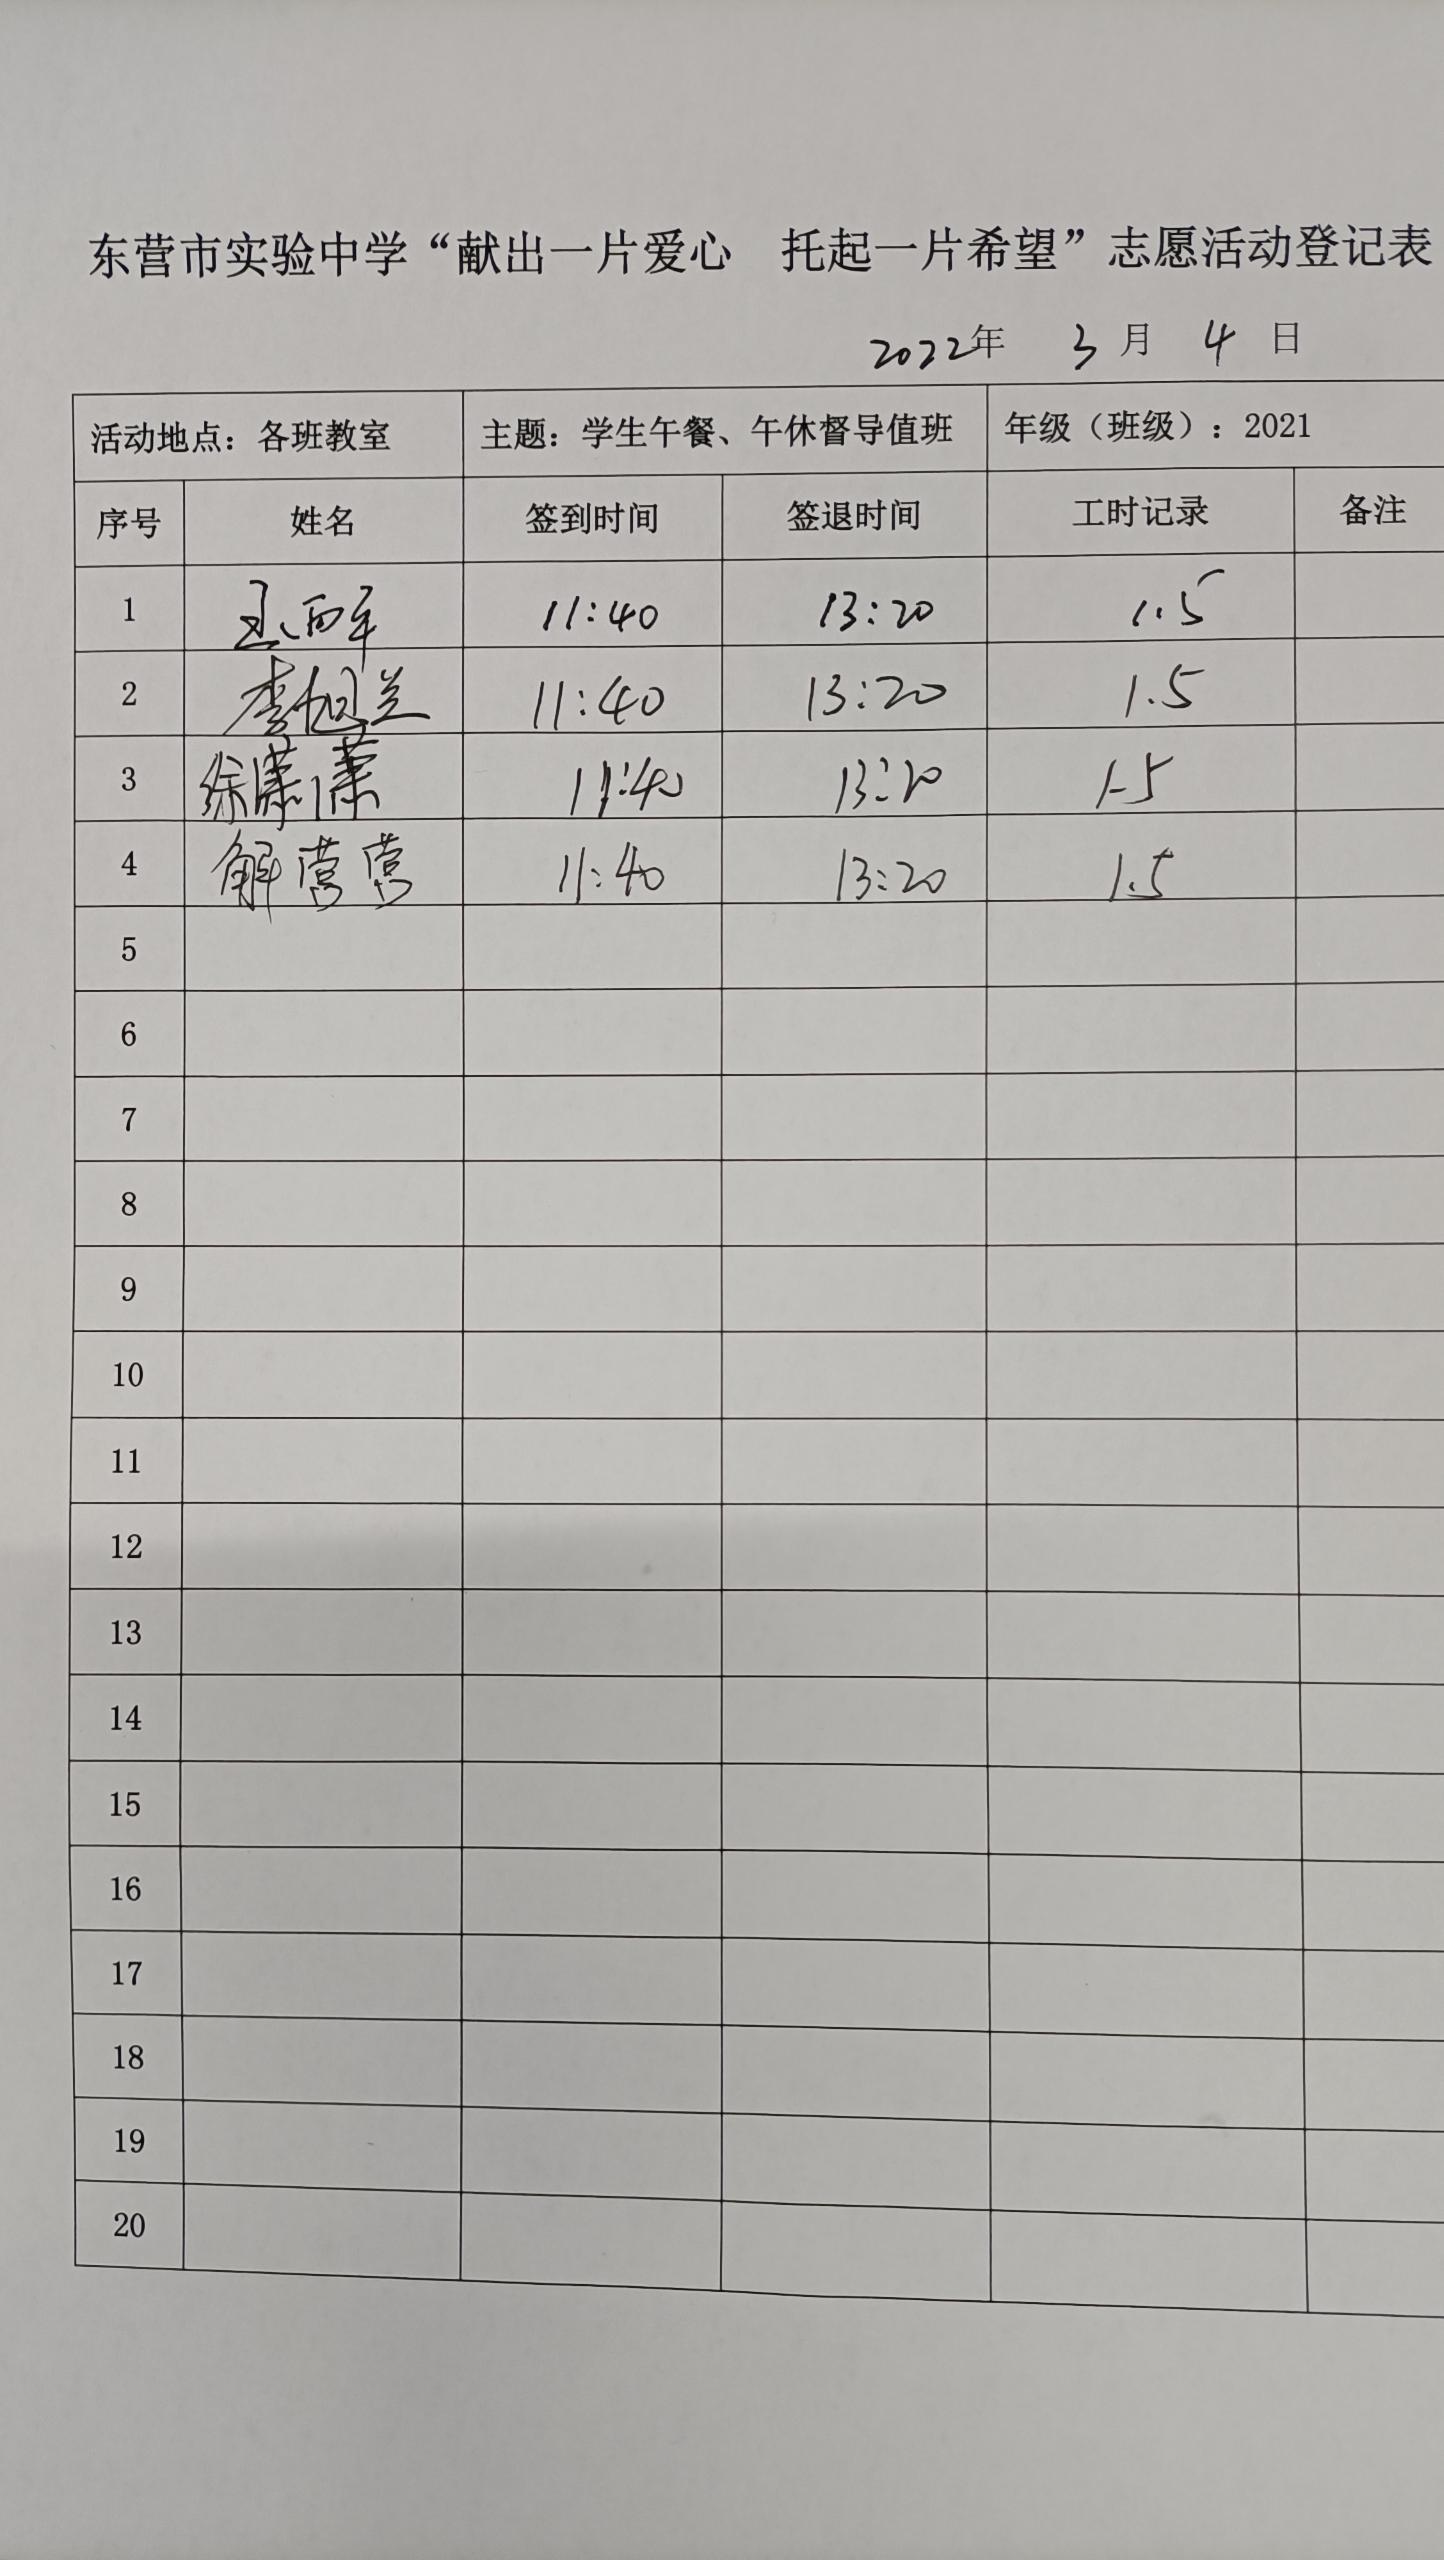 东营市实验中学“献出一片爱心　托起一片希望”志愿活动登记表
2022年 3 月 4 日
活动地点：各班教室 主题：学生午餐、午休督导值班 年级（班级）：2021
序号 姓名 签到时间 签退时间 工时记录 备注
1 11:40 13:20 1.5
2 李旭兰 11:40 13:20 1.5
3 徐潇潇 11:40 13:20 1.5
4 解营营 11:40 13:20 1.5
5
6
7
8
9
10
11
12
13
14
15
16
17
18
19
20